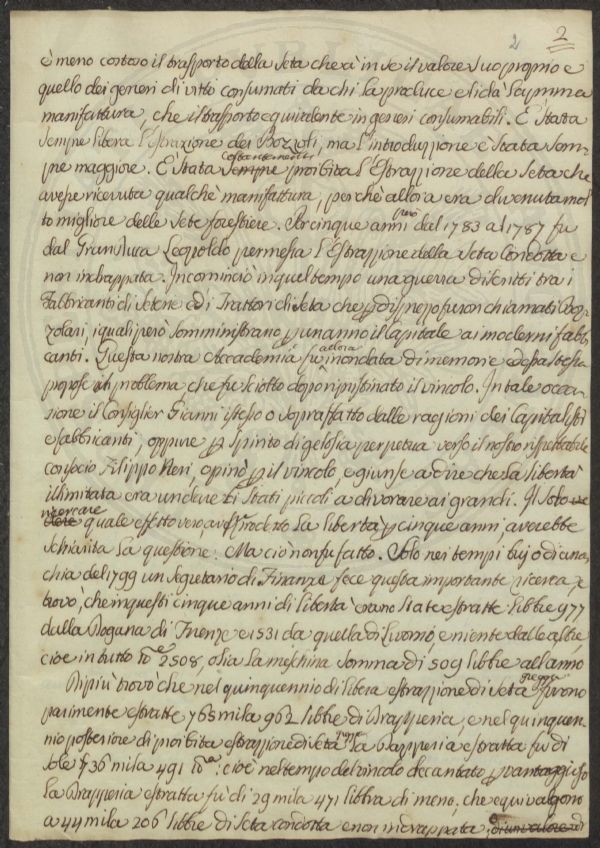 2 2
è meno costoso il trasporto della seta che à in se il valore suo proprio e
quello dei generi di vitto consumati da chi la produce e li dà la prima
manifattura, che il trasporto equivalente in generi consumabili. È stata
sempre libera l'estrazione dei Bozzoli, ma l'introduzione è stata sem-
costantemente
pre maggiore. È stata sempre proibita l'Estrazione della Seta che
avesse ricevuta qualche manifattura, perchè allora era divenuta mol
to migliore delle Sete forestiere. Per cinque anni però dal 1783 al 1787 fu
dal Granduca Leopoldo permessa l'Estrazione della Seta Condotta e
non indrappata. Incominciò in quel tempo una guerra di scritti tra i
Fabbricanti di Seterie ed i Trattori di Seta che per disprezzo furon chiamati Boz-
zolari, i quali però somministrano per un anno il Capitale ai moderni fabbri
canti. Questa nostra Accademia fù allora inondata di memorie ed essa stessa
propose un problema che fu sciolto dopo ripristinato il vincolo. In tale occa-
sione il Consiglier Gianni istesso o sopraffatto dalle ragioni dei Capitalisti
e fabbricanti, oppure per Spirito di gelosia perpetua verso il nostro rispettabile
consocio Filippo Neri, opinò per il vincolo, e giunse a dire che la libertà
illimitata era un dare li Stati piccoli a divorare ai grandi. Il solo
ricercare quale effetto vero avesse prodotto la libertà per cinque anni, averebbe
schiarita la questione. Ma ciò non fu fatto. Solo nei tempi buj o di anar
chia del 1799 un Segretario di Finanze fece questa importante ricerca, e
trovò, che in questi cinque anni di libertà erano state estratte libbre 977
dalla Dogana di Firenze e 1531 da quella di Livorno, e niente dalle altre,
cioè in tutto lb.e 2508, ossia la meschina somma di 509 libbre all'anno
Di più trovò che nel quinquennio di libera estrazione di seta greggia furono
parimente estratte 765 mila 962 libbre di Drapperia, e nel quinquen-
nio posteriore di proibita estrazione di seta la Drapperia estratta fù di
sole 736 mila 491 lb.e: cioè nel tempo del vincolo decantato per vantaggioso
la Drapperia estratta fù di 29 mila 471 libbra di meno, che equivalgono
a 44 mila 206 libbre di Seta condotta e non indrappata, di un valore di